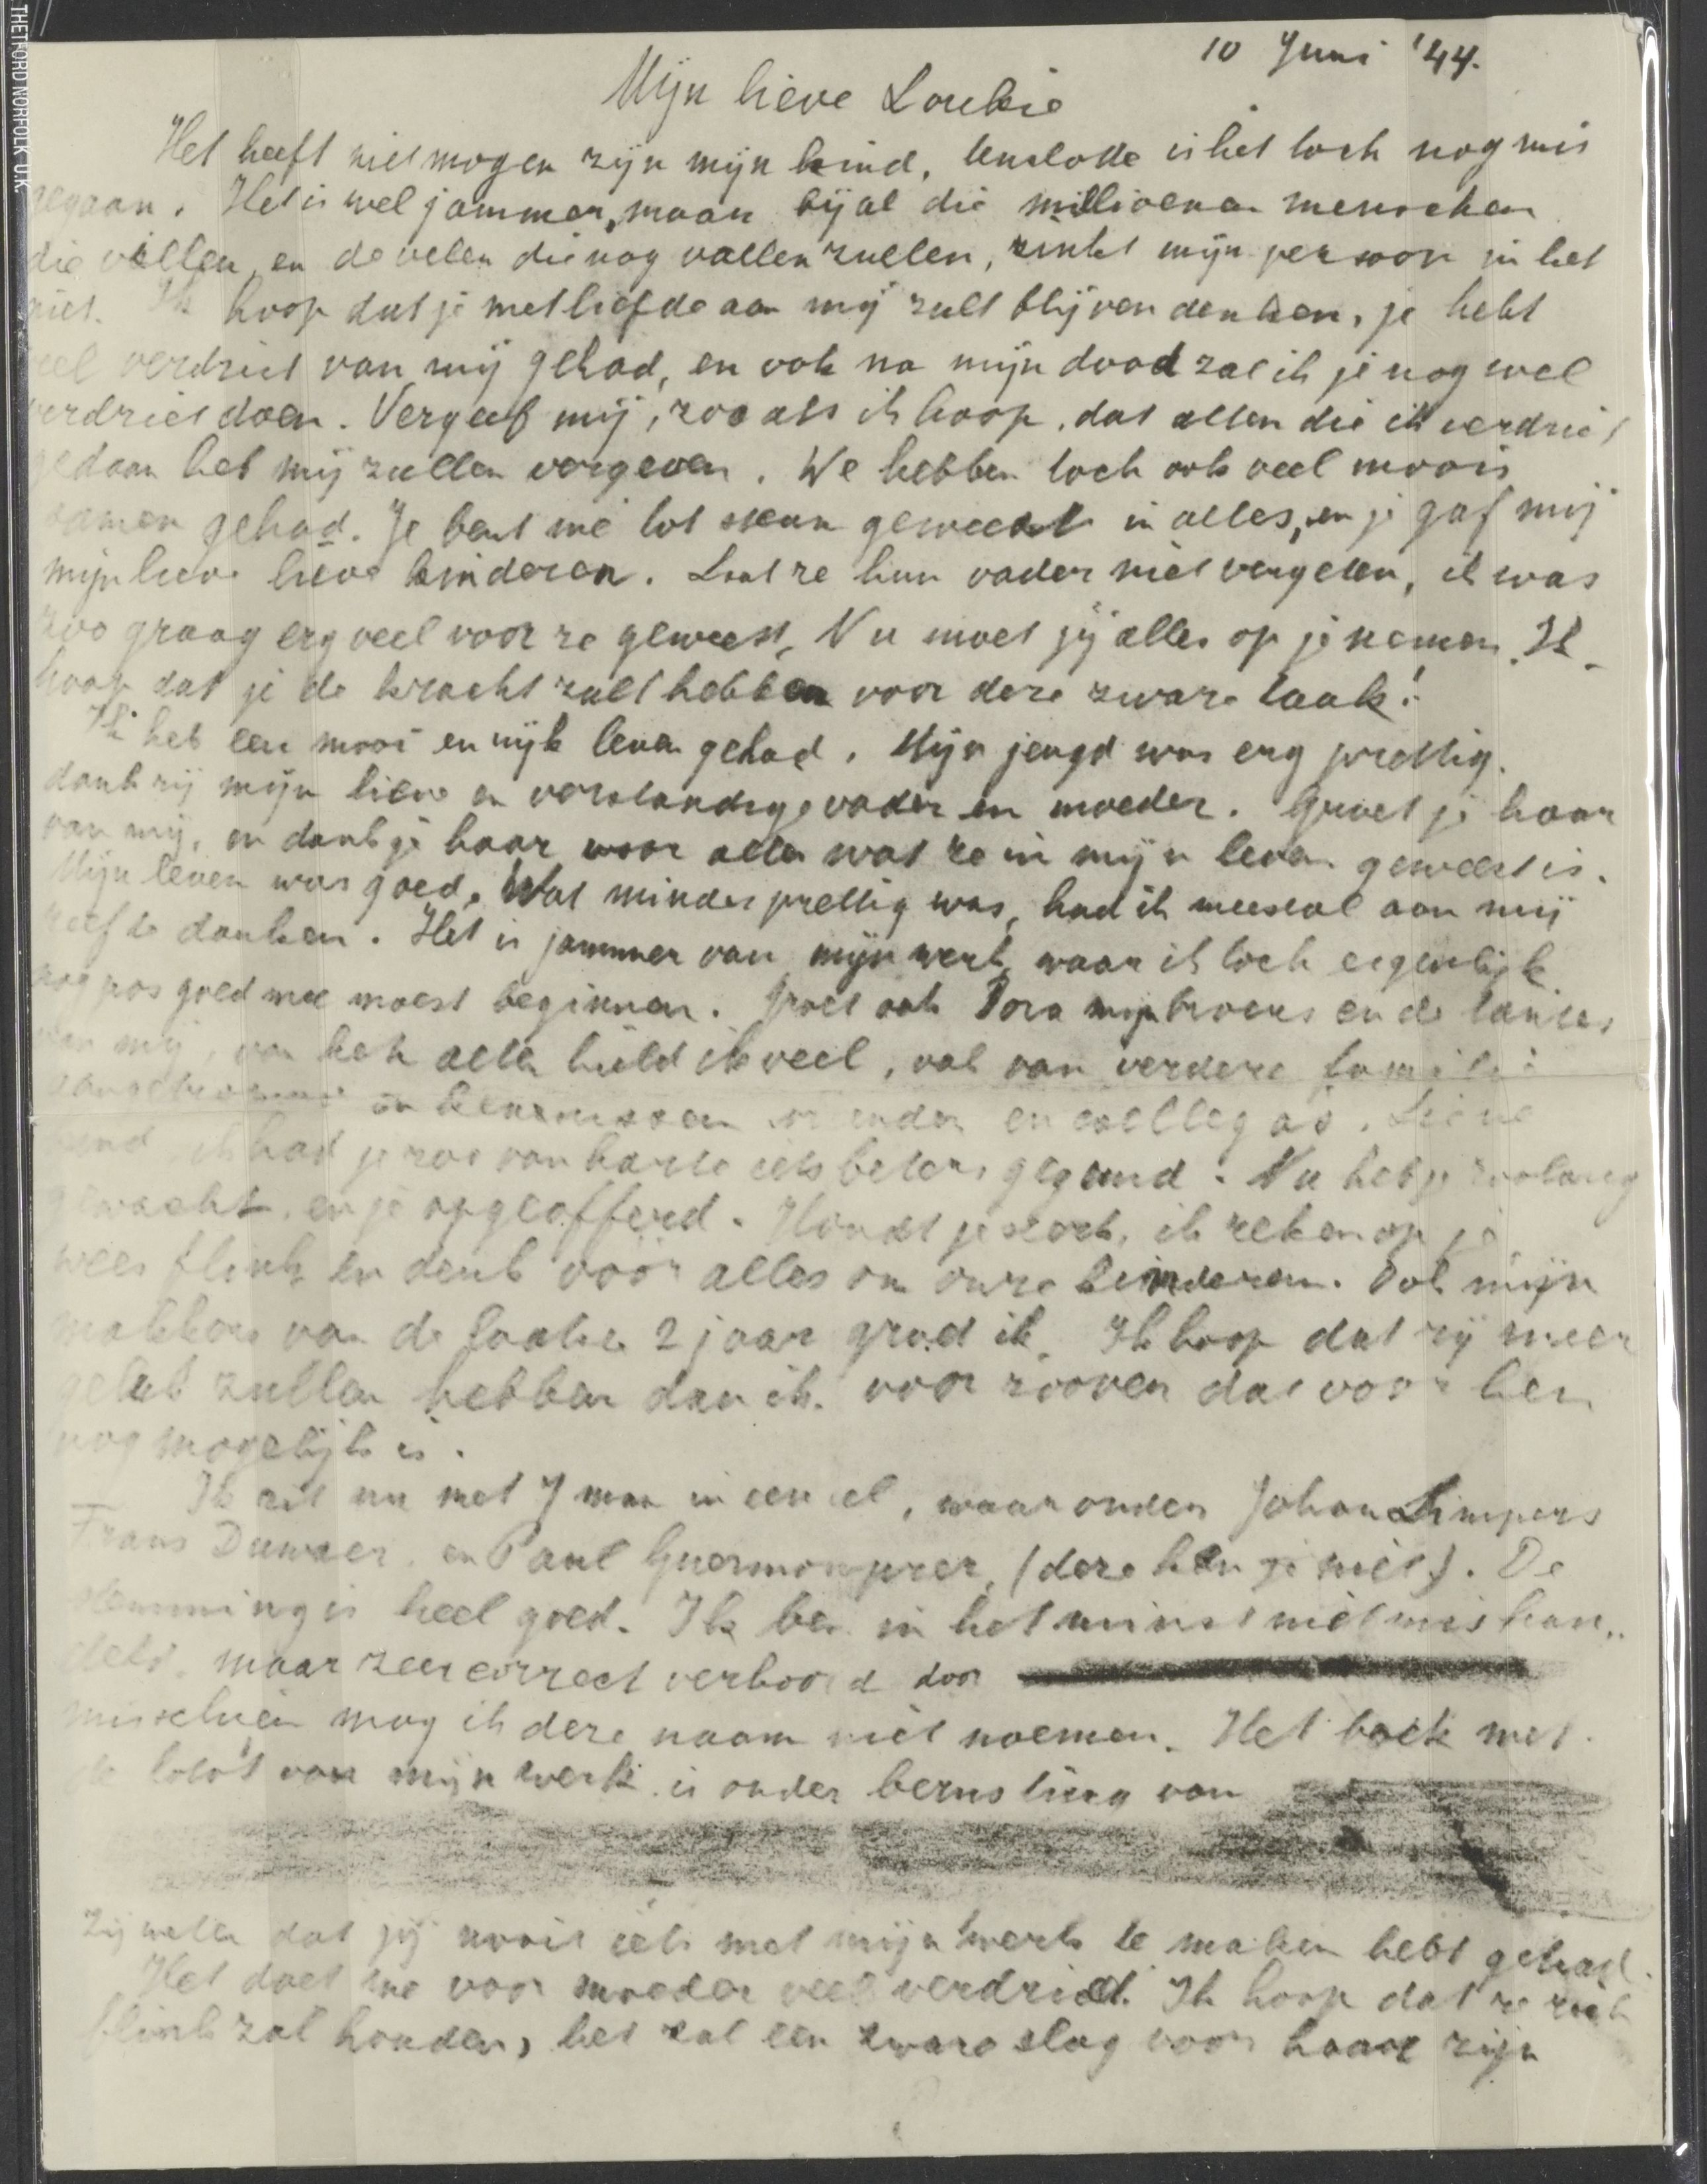 THETFORD NORFOLK U.K.
10 Juni '44.
Mijn lieve Loukie
Het heeft niet mogen zijn mijn kind, tenslotte is het toch nog mis
gegaan. Het is wel jammer, maar bij al die millioenen menschen
die vallen, en de velen die nog vallen zullen, zinkt mijn persoon in het
niet. Ik hoop dat je met liefde aan mij zult blijven denken, je hebt
veel verdriet van mij gehad, en ook na mijn dood zal ik je nog wel
verdriet doen. Vergeef mij, zooals ik hoop, dat allen die ik verdriet
gedaan heb mij zullen vergeven. We hebben toch ook veel moois
samen gehad. Je bent me tot steun geweest in alles, en je gaf mij
mijn lieve lieve kinderen. Laat ze hun vader niet vergeten, ik was
zoo graag erg veel voor ze geweest, Nu moet jij alles op je nemen. Ik
hoop dat je de kracht zult hebben voor deze zware taak!
Ik heb een mooi en rijk leven gehad. Mijn jeugd was erg prettig.
dank zij mijn lieve en verstandige vader en moeder. Groet je haar
van mij, en dank je haar voor alles wat ze in mijn leven geweest is.
Mijn leven was goed. Wat minder prettig was, had ik meestal aan mij
zelf te danken. Het is jammer van mijn werk, waar ik toch eigenlijk
nog pas goed mee moest beginnen. Groet ook mijn broers en de tantes
van mij, van hen allen hield ik veel, ook van verdere familie
aangetrouwd en kennissen vrienden en collega's. Lieve
kind ik had je zoo van harte iets beters gegund. Nu heb je zoolang
gewacht, en je opgeofferd. Houdt je sterk, ik reken op je
wees flink en denk vóór alles om onze kinderen. Ook mijn
makkers van de laatste 2 jaar groet ik. Ik hoop dat zij meer
geluk zullen hebben dan ik. voor zoover dat voor hen
nog mogelijk is.
Ik zit nu met 7 man in een cel, waaronder Johan Limpers
Frans Duwaer, en Paul Guermonprez, (deze ken je niet). De
stemming is heel goed. Ik ben in het minst niet mishan-
deld, maar zeer correct verhoord door
misschien mag ik deze naam niet noemen. Het boek met
de foto's van mijn werk is onder berusting van
Zij weten dat jij nooit iets met mijn werk te maken hebt gehad.
Het doet me voor moeder veel verdriet. Ik hoop dat ze zich
flink zal houden, het zal een zware slag voor haar zijn